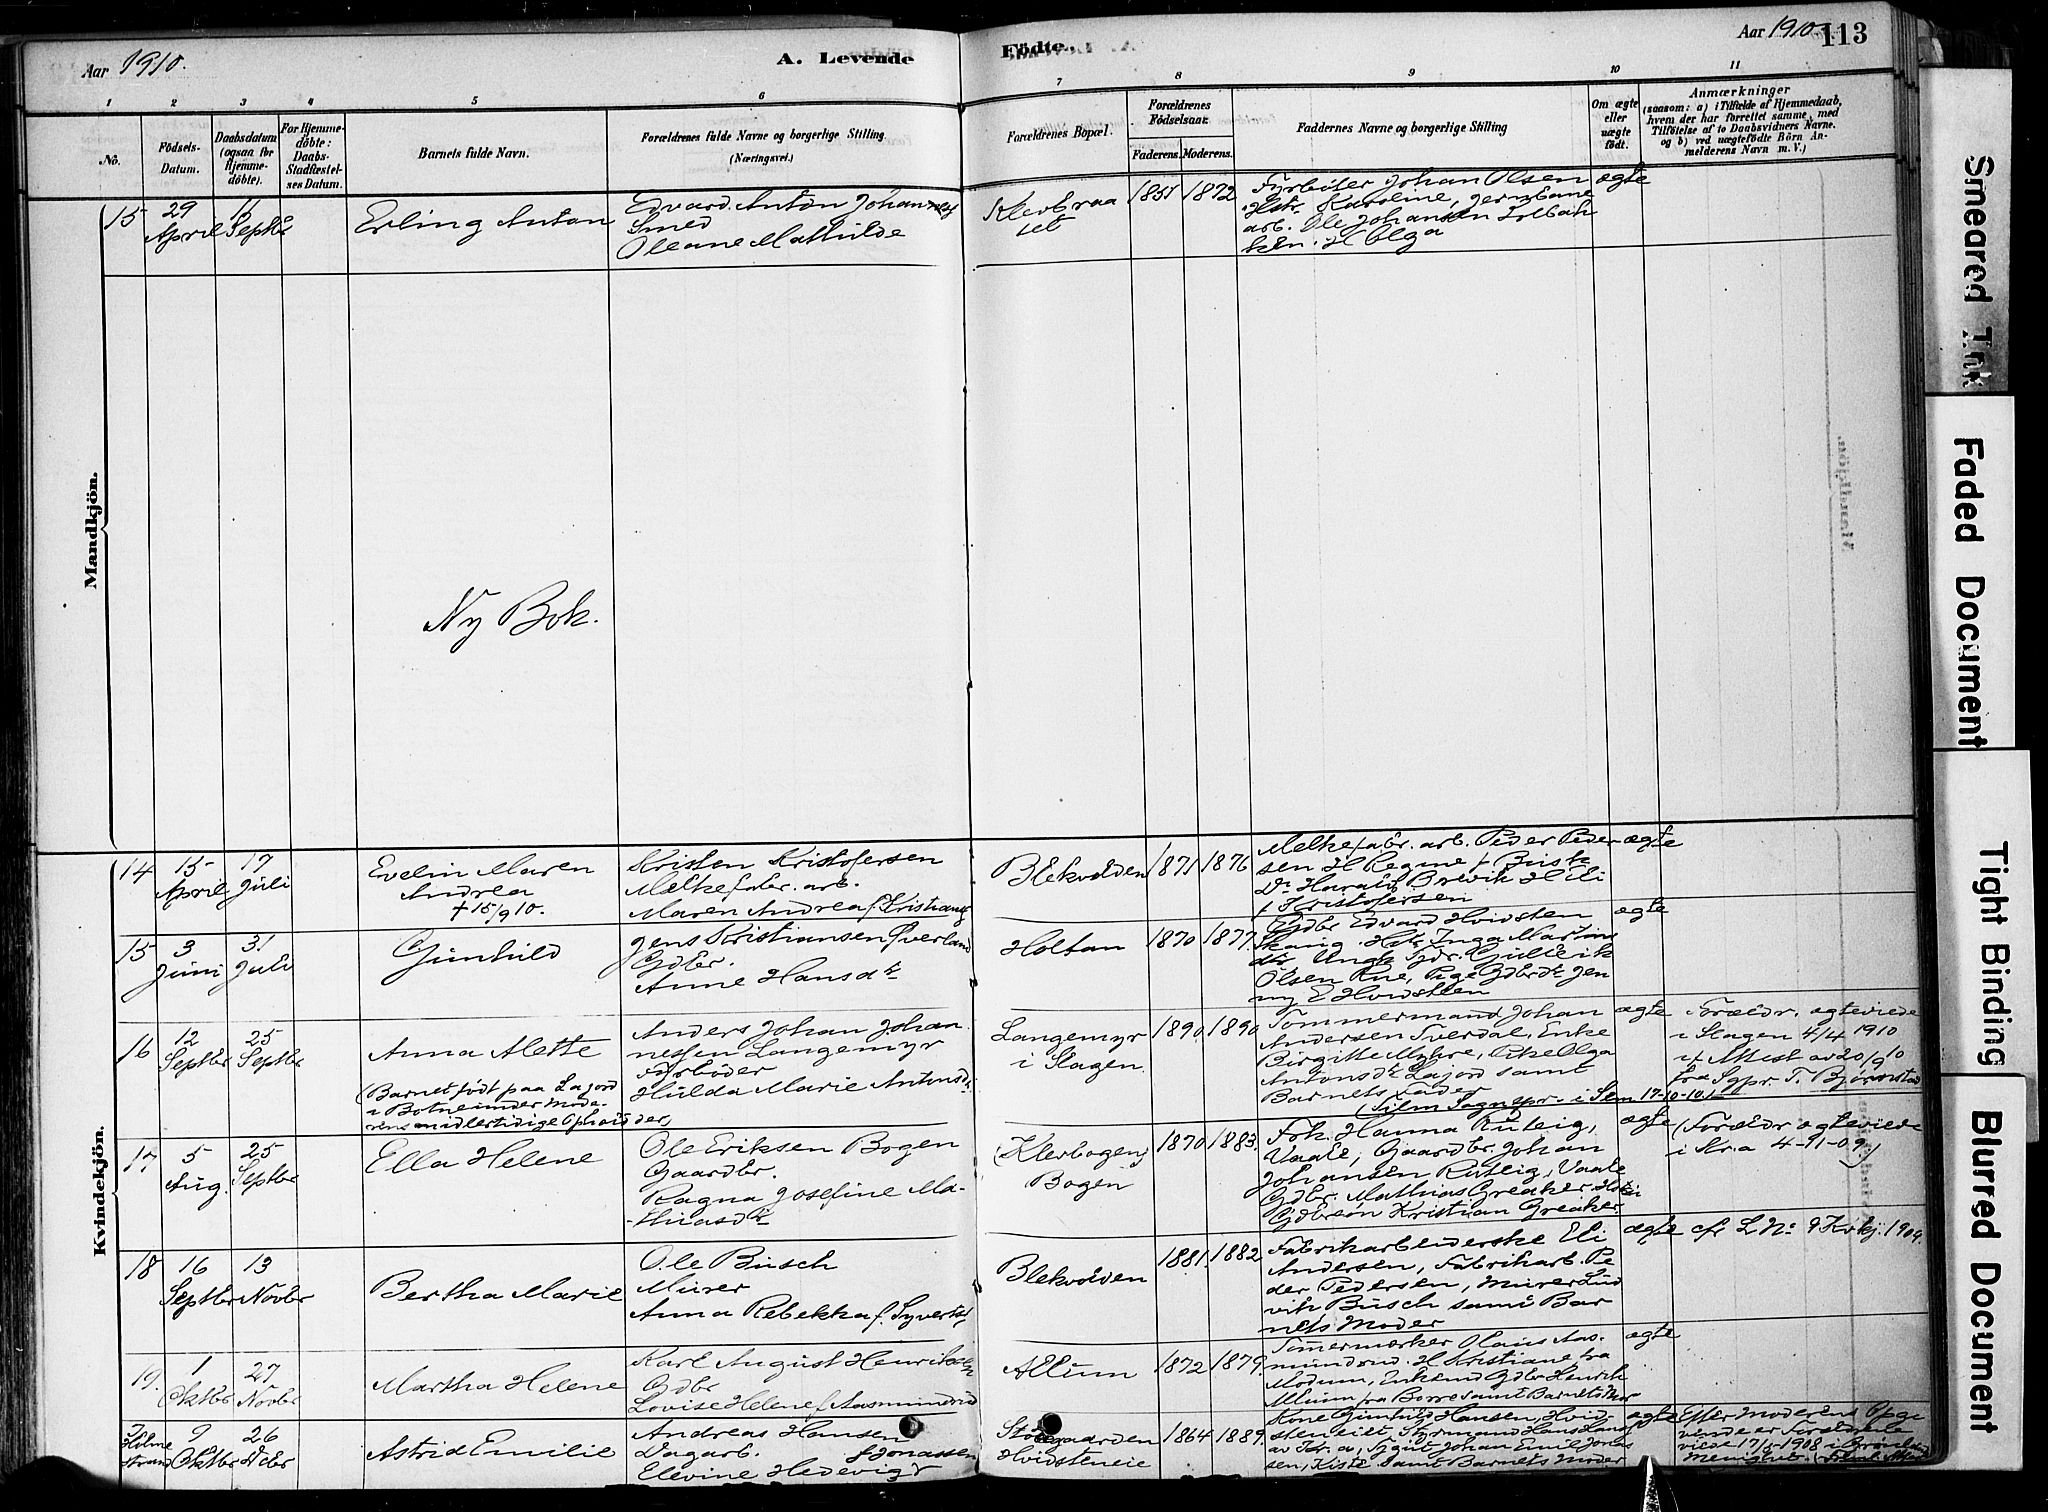 Aar 1910.
A. Levende
Födte.
Aar 1910
113
1
2
3
4
5
6
7
8
9
10
11
No.
Födsels-Datum.
Daabsdatum (ogsaa for Hjemme-döbte).
For Hjemme-döbte: Daabs-Stadfæstel-ses Datum.
Barnets fulde Navn.
Forældrenes fulde Navne og borgerlige Stilling.
(Næringsvei.)
Forældrenes Bopæl.
Forældrenes Födselsaar.
Faderens.
Moderens.
Faddernes Navne og borgerlige Stilling
Om ægte eller uægte födt.
Anmærkninger
(saasom: a) i Tilfælde af Hjemmedaab,
hvem der har forrettet samme, med
Tilföielse af to Daabsvidners Navne.
og b) ved uægtefödte Börn An-
melderens Navn m. V.)
Mandkjön.
15
29 April
11 Septbr
Erling Anton
Edvard Anton Johannes
Smed
Oleane Mathilde
1872
Fyrböter Johan Olsen
Hstr. Karoline, Jernbane
arb. Ole Johansen
H Olga
ægte
Ny Bok.
Kvindekjön.
14
15 April
17 Juli
Evelin Maren
Andrea
† 15/9 10.
Kristen Kristofersen
Melkefabr. arb.
Maren Andrea f. Kristians
Blekvolden
1871
1876
Melkefabr. arb. Peder Peder
sen H Regine f. Busk
Do Harald Brevik H Eli
f Kristofersen
ægte
15
3 Juni
31 Juli
Gunhild
Jens Kristiansen Överland
Gdbr.
Anne Hansdtr
Holtan
1870
1877.
Gdbr Edvard Hvidsten
Skaug. Hstr. Inga Martins
dtr Ungk. Gdr. Gullerik
Olsen Rue, Pige Gdbrdtr Jen
ny E Hvidsteen
ægte
16
12 Septbr
25 Septbr
Anna Alette
(Barnet födt paa Lajord
i Botne under Mode-
rens midlertidige Ophold der)
Anders Johan Johan
nessen Langemyr
Fyrböder
Hulda Marie Antonsdtr
Langemyr
i Slagen.
1890
1890
Tömmermand Johan
Andersen Sverdal, Enke
Birgitte Myhre, Pike Olga
Antonsdtr Lajord samt
Barnets Fader
(Tilm Sognepr. i Sem 17-10-10.)
ægte
Forældr. ægteviede
i Slagen 4/4 1910
if. Attest av 20/9 10
fra Sgpr. T. Bjørnstad
17
5 Aug.
25 Septbr
Ella Helene
Ole Eriksen Bogen
Gaardbr.
Ragna Josefine Ma-
thiasdtr
(Klerbogen)
Bogen
1870
1883.
Frk. Hanna Ruteig,
Vaale, Gaardbr. Johan
Johansen Ruteig, Vaale
Gdbr. Mathias Greaker
Gdbrsön Kristian Greaker.
ægte
(Forældr ægteviede
i Kr.a 4-11-09)
18
16 Septbr
13 Novbr
Bertha Marie
Ole Busch
Murer
Anna Rebekka f. Syverts
Blekvolden
1881.
1882
Fabrikarbeiderske Eli
Andersen, Fabrikarb. Pe
der Pedersen, Murer Lud
vik Busch samt Bar
nets Moder
ægte
cf L No 9 Kvkj. 1909.
19.
1 Oktbr
27 Novbr
Martha Helene
Karl August Henriksen
Gdbr
Lovise Helene f. Aasmundrud
Allum
1872
1879.
Tömmermærker Olaus Aas-
mundrud. H Kristiane fra
Modum, Enkemd Gdbr Henrik
Allum fra Borre samt Barnets Mor
ægte
9 Oktbr
26
Astrid Emilie
Andreas Hansen
Dagarb.
Elevine Hedevig f Jonassen
Hvidsteneie
1864
1889.
Kone Gunhild Hansen, Hvid-
steneiet, Styrmand Hans
av Kr.a, Johan Emil Jonas
sen, Kiste samt Barnets Moder
ægte
Efter Moderens Opgi
vende er Forældrene
viede 17/5 1908 i
Menighet.
Smeared Ink
Faded Document
Tight Binding
Blurred Document